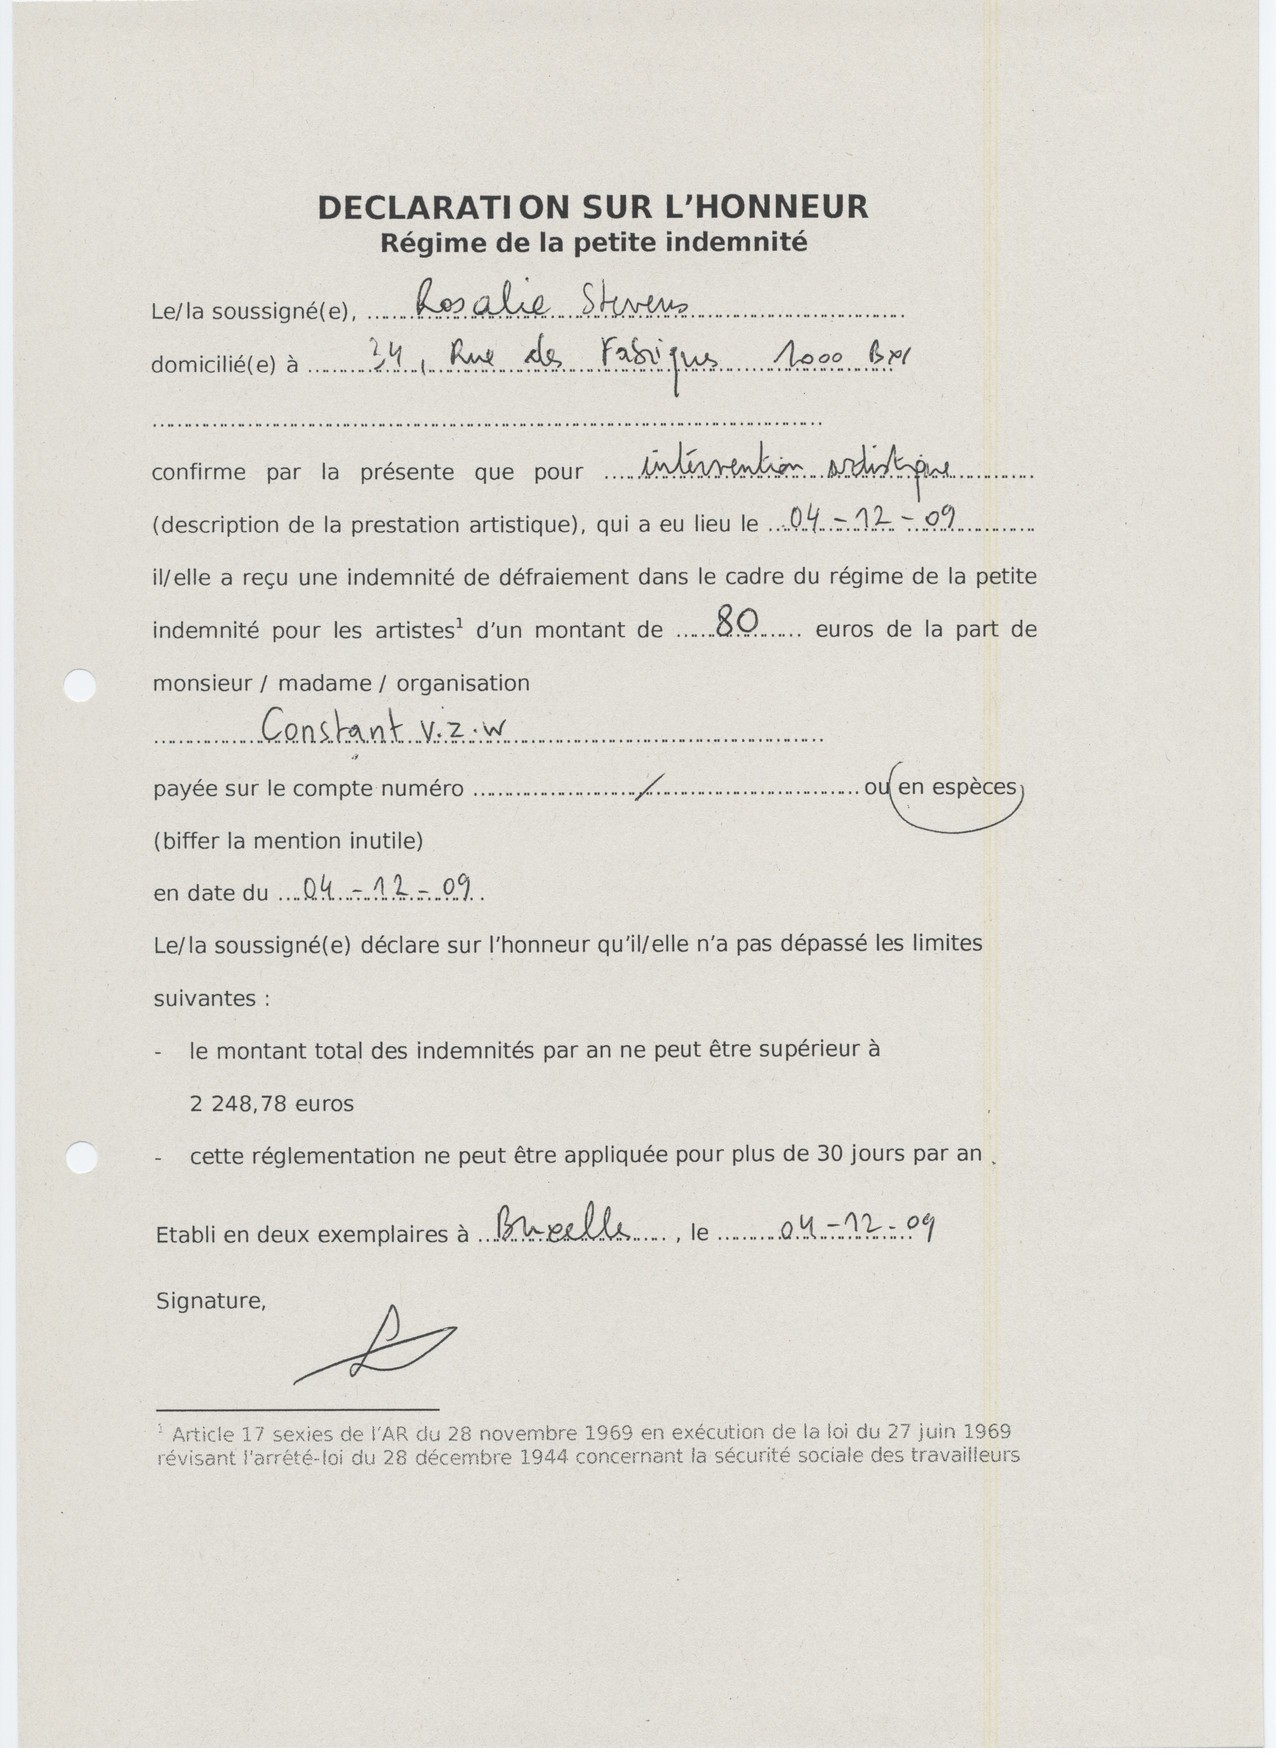 DECLARATION SUR L'HONNEUR
Régime de la petite indemnité
Le/la soussigné(e), Rosalie Stevens
domicilié(e) à 34, Rue des Fabriques 1000 Bxl
confirme par la présente que pour intervention artistique
(description de la prestation artistique), qui a eu lieu le 04-12-09
il/elle a reçu une indemnité de défraiement dans le cadre du régime de la petite
indemnité pour les artistes¹ d'un montant de 80 euros de la part de
monsieur / madame / organisation
Constant v.z.w
payée sur le compte numéro / ou en espèces
(biffer la mention inutile)
en date du 04-12-09.
Le/la soussigné(e) déclare sur l'honneur qu'il/elle n'a pas dépassé les limites
suivantes :
- le montant total des indemnités par an ne peut être supérieur à
2 248,78 euros
- cette réglementation ne peut être appliquée pour plus de 30 jours par an.
Etabli en deux exemplaires à Bruxelles, le 04-12-09
Signature,
¹ Article 17 sexies de l'AR du 28 novembre 1969 en exécution de la loi du 27 juin 1969
révisant l'arrêté-loi du 28 décembre 1944 concernant la sécurité sociale des travailleurs